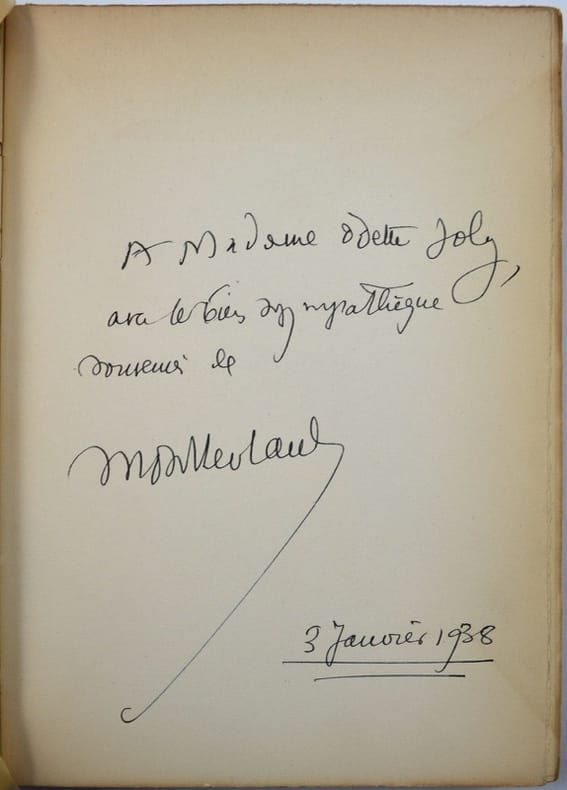 A Madame Odette Joly,
avec le bien sympathique
souvenir de
Montherlant
3 Janvier 1938